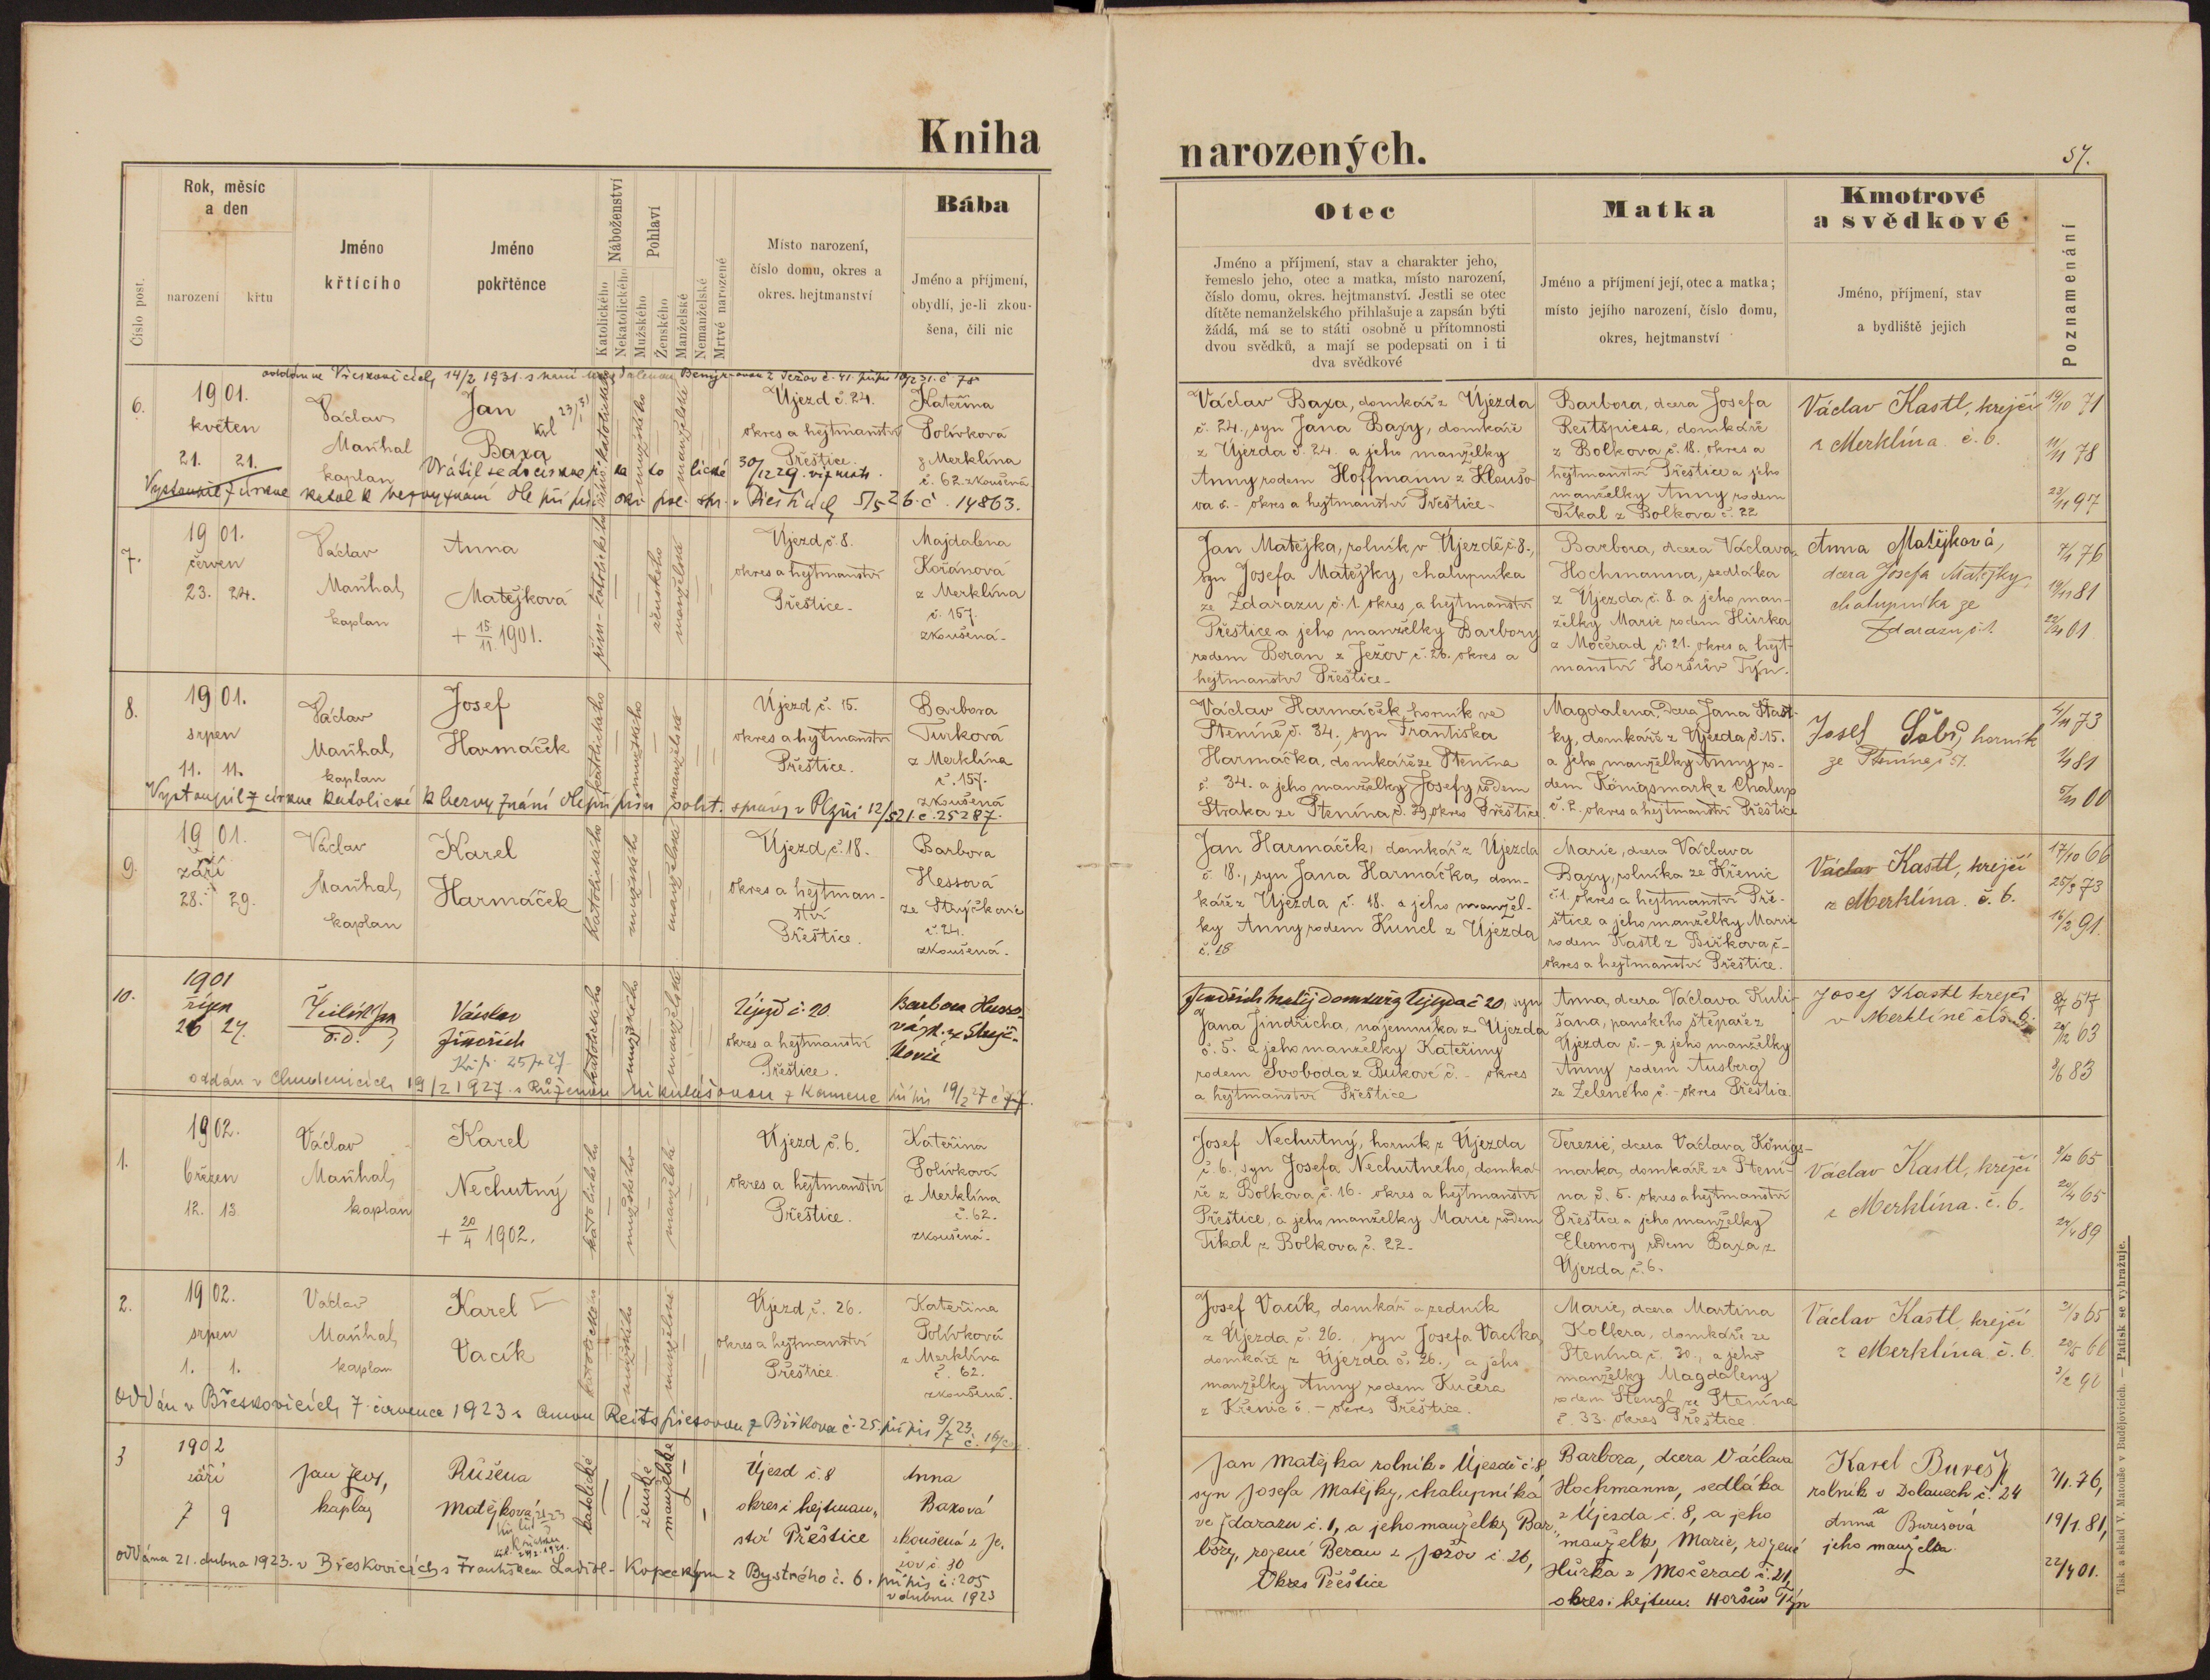 Kniha
Rok, měsíc
a den
narození
křtu
Číslo post.
Jméno
křtícího
Jméno
pokřtěnce
Náboženství
Katolického
Nekatolického
Pohlaví
Mužského
Ženského
Manželské
Nemanželské
Mrtvé narozené
Místo narození,
číslo domu, okres a
okres. hejtmanství
Bába
Jméno a příjmení,
obydlí, je-li zkou-
šena, čili nic
6.
1901.
květen
21. 21.
Václav
Maňhal
kaplan
Jan
Baxa
Újezd č. 24.
okres a hejtmanství
Přeštice
Kateřina
Polívková
z Merklína
č. 62. zkoušená
7.
1901.
červen
23. 24.
Václav
Maňhal,
kaplan
Anna
Matějková
+ 15/11. 1901.
ženského
manželské
Újezd, č. 8.
okres a hejtmanství
Přeštice.
Majdalena
Kořánová
z Merklína
č. 157.
zkoušená.
8.
1901.
srpen
11. 11.
Václav
Maňhal,
kaplan
Josef
Harmáček
katolického
mužského
manželské
Újezd, č. 15.
okres a hejtmanství
Přeštice.
Barbora
Turková
z Merklína
č. 157.
zkoušená
Vystoupil z církve katolické k bezvyznání dle přípisu polit. správy v Plzni 12/5 21. č. 25287.
9.
1901.
září
28. 29.
Václav
Maňhal,
kaplan
Karel
Harmáček
katolického
mužského
manželské
Újezd, č. 18.
okres a hejtman-
ství
Přeštice.
Barbora
Hessová
ze Strýčkovic
č. 24.
zkoušená.
10.
1901
říjen
26 27.
Václav
Jindřich
katolického
mužského
manželské
Újezd č. 20
okres a hejtmanství
Přeštice.
oddán v Chudenicích 19/2 1927 s Růženou Mikulášovou z Kamene
1.
1902.
březen
12. 13.
Václav
Maňhal,
kaplan
Karel
Nechutný
+ 20/4 1902.
katolického
mužského
manželské
Újezd, č. 6.
okres a hejtmanství
Přeštice.
Kateřina
Polívková
z Merklína
č. 62.
zkoušená.
2.
1902.
srpen
1. 1.
Václav
Maňhal,
kaplan
Karel
Vacík
mužského
manželské
Újezd, č. 26.
okres a hejtmanství
Přeštice.
Kateřina
Polívková
z Merklína
č. 62.
zkoušená.
oddán v Břeskovicích 7. července 1923 s Annou Reitspiesovou z Biřkova č. 25. přípis 9/7 23
3
1902
září
7 9
kaplan
Růžena
Matějková
katolické
ženské
manželské
Újezd č. 8
okres i hejtman-
ství Přeštice
Anna
Baxová
zkoušená z Je-
žov č. 30
oddána 21. dubna 1923. v Břeskovicích s Františkem Ladisl. Kopeckým z Bystrého č. 6. přípis č. 205
v dubnu 1923
narozených.
57.
Otec
Jméno a příjmení, stav a charakter jeho,
řemeslo jeho, otec a matka, místo narození,
číslo domu, okres. hejtmanství. Jestli se otec
dítěte nemanželského přihlašuje a zapsán býti
žádá, má se to státi osobně u přítomnosti
dvou svědků, a mají se podepsati on i ti
dva svědkové
Matka
Jméno a příjmení její, otec a matka;
místo jejího narození, číslo domu,
okres, hejtmanství
Kmotrové
a svědkové
Jméno, příjmení, stav
a bydliště jejich
Poznamenání
Václav Baxa, domkář z Újezda
č. 24., syn Jana Baxy, domkáře
z Újezda č. 24. a jeho manželky
Anny rodem Hoffmann z Kloušo-
va č. - okres a hejtmanství Přeštice.
Barbora, dcera Josefa
Reitspiesa, domkáře
z Bolkova č. 18. okres a
hejtmanství Přeštice a jeho
manželky Anny rodem
Tikal z Bolkova č. 22
Václav Kastl, krejčí
z Merklína č. 6.
19/10 71
11/11 78
23/11 97
Jan Matějka, rolník v Újezdě, č. 8.,
syn Josefa Matějky, chalupníka
ze Ždarazu č. 1. okres a hejtmanství
Přeštice a jeho manželky Barbory
rodem Beran z Ježov č. 26. okres a
hejtmanství Přeštice.
Barbora, dcera Václava
Hochmanna, sedláka
z Újezda, č. 8. a jeho man-
želky Marie rodem Hůrka
z Močerad č. 21. okres a hejt-
manství Horšův Týn.
Anna Matějková,
dcera Josefa Matějky
chalupníka ze
Ždarazu, č. 1.
Václav Harmáček, horník ve
Pteníně, č. 34., syn Františka
Harmáčka, domkáře ze Ptenína
č. 34. a jeho manželky Josefy rodem
Straka ze Ptenína, č. 29, okres Přeštice.
Magdalena, dcera Jana Šťast-
ky, domkáře z Újezda, č. 15.
a jeho manželky Anny ro-
dem Königsmark z Chalup
č. 2. okres a hejtmanství Přeštice
Josef horník
ze Ptenína, č. 51.
Jan Harmáček, domkář z Újezda
č. 18., syn Jana Harmáčka, dom-
káře z Újezda č. 18. a jeho manžel-
ky Anny rodem Kuncl z Újezda
č. 18
Marie, dcera Václava
Baxy, rolníka ze Křenic
č. 1. okres a hejtmanství Pře-
štice a jeho manželky Marie
rodem Kastl z Biřkova, č. -
okres a hejtmanství Přeštice.
Václav Kastl, krejčí
z Merklína č. 6.
17/10 66
25/2 73
16/2 91.
Jana Jindřicha, nájemníka z Újezda
č. 5. a jeho manželky Kateřiny
rodem Svoboda z Bukové č. - okres
a hejtmanství Přeštice
Anna, dcera Václava Kuli-
šana, panského štěpaře z
Újezda č. - a jeho manželky
Anny rodem Ausberg
ze Zeleného č. - okres Přeštice.
Josef Kastl krejčí
v Merklíně číslo 6.
Josef Nechutný, horník z Újezda
č. 6., syn Josefa Nechutného, domká-
ře z Bolkova, č. 16. okres a hejtmanství
Přeštice, a jeho manželky Marie rodem
Tikal z Bolkova, č. 22.
Terezie, dcera Václava Königs-
marka, domkáře ze Ptení-
na č. 5. okres a hejtmanství
Přeštice a jeho manželky
Eleonory rodem Baxa z
Újezda, č. 6.
Václav Kastl, krejčí
z Merklína. č. 6.
Josef Vacík, domkář a zedník
z Újezda č. 26., syn Josefa Vacíka,
domkáře z Újezda č. 26., a jeho
manželky Anny rodem Kučera
z Křenic č. - okres Přeštice.
Marie, dcera Martina
Kollera, domkáře ze
Ptenína, č. 30., a jeho
manželky Magdaleny
rodem Stengl ze Ptenína
č. 33. okres Přeštice
Václav Kastl, krejčí
z Merklína č. 6.
Jan Matějka rolník v Újezdě č. 8,
syn Josefa Matějky, chalupníka
ve Ždarazu č. 1, a jeho manželky Bar-
bory, rozené Beran z Ježov č. 26,
Okres Přeštice
Barbora, dcera Václava
Hochmanna, sedláka
z Újezda č. 8, a jeho
manželky Marie, rozené
Hůrka z Močerad č. 21,
okres i hejtm. Horšův Týn
Karel Bureš,
rolník v Dolanech č. 24
a
Anna Burešová
jeho manželka.
19/1. 81,
22/4 01.
Tisk a sklad V. Matouše v Budějovicích. — Patisk se vyhražuje.